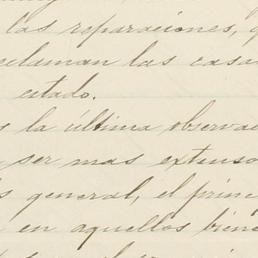 las reparaciones,
claman las casa
citado.
la última observa
ser mas extenso
general, el princ
en aquellos biene